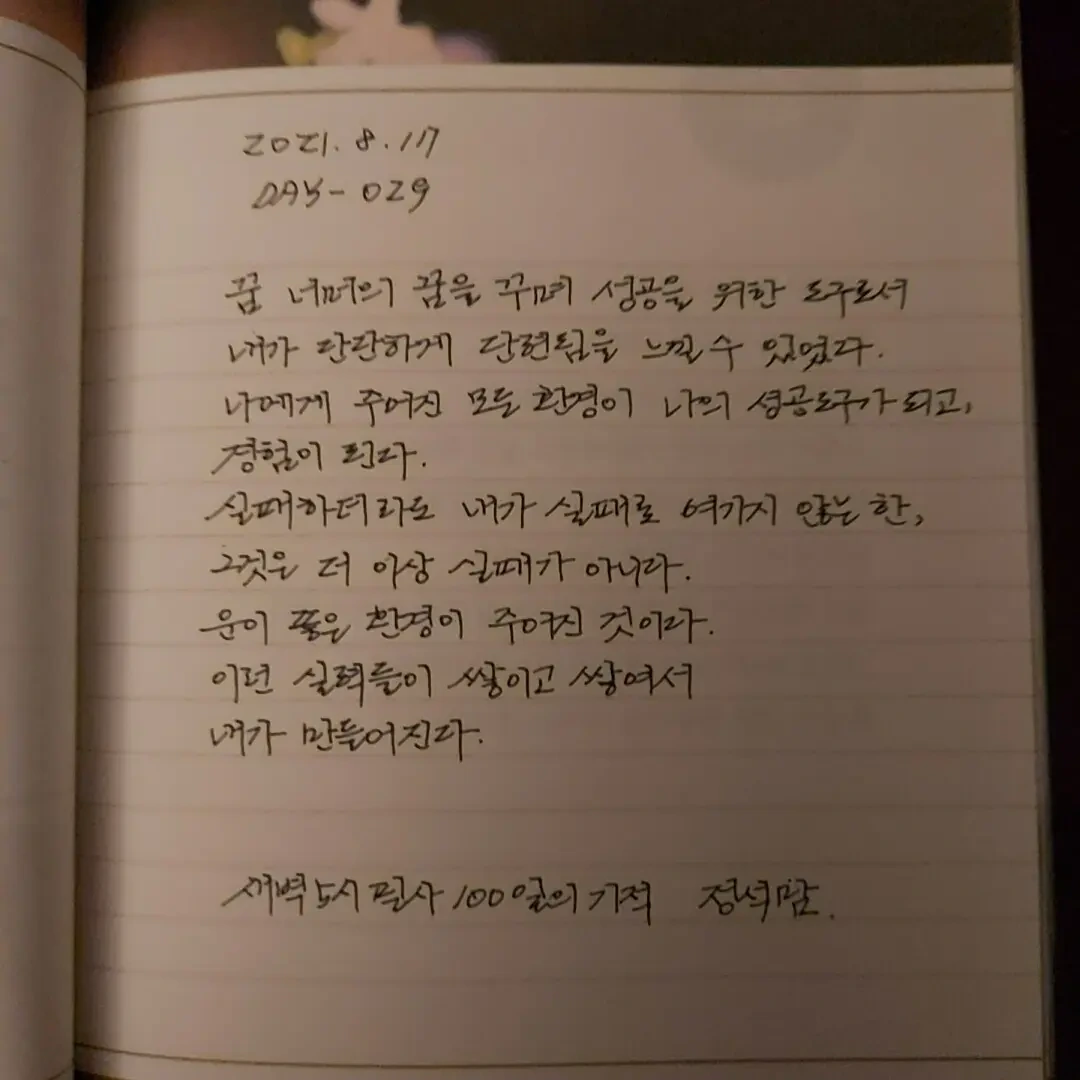 2021. 8. 17
DAY - 029
꿈 너머의 꿈을 꾸며 성공을 위한 도구로서
내가 단단하게 단련됨을 느낄 수 있었다.
나에게 주어진 모든 환경이 나의 성공도구가 되고,
경험이 된다.
실패하더라도 내가 실패로 여기지 않는 한,
그것은 더 이상 실패가 아니다.
운이 좋은 환경이 주어진 것이다.
이런 실력들이 쌓이고 쌓여서
내가 만들어진다.
새벽 5시 필사 100일의 기적 정석맘.